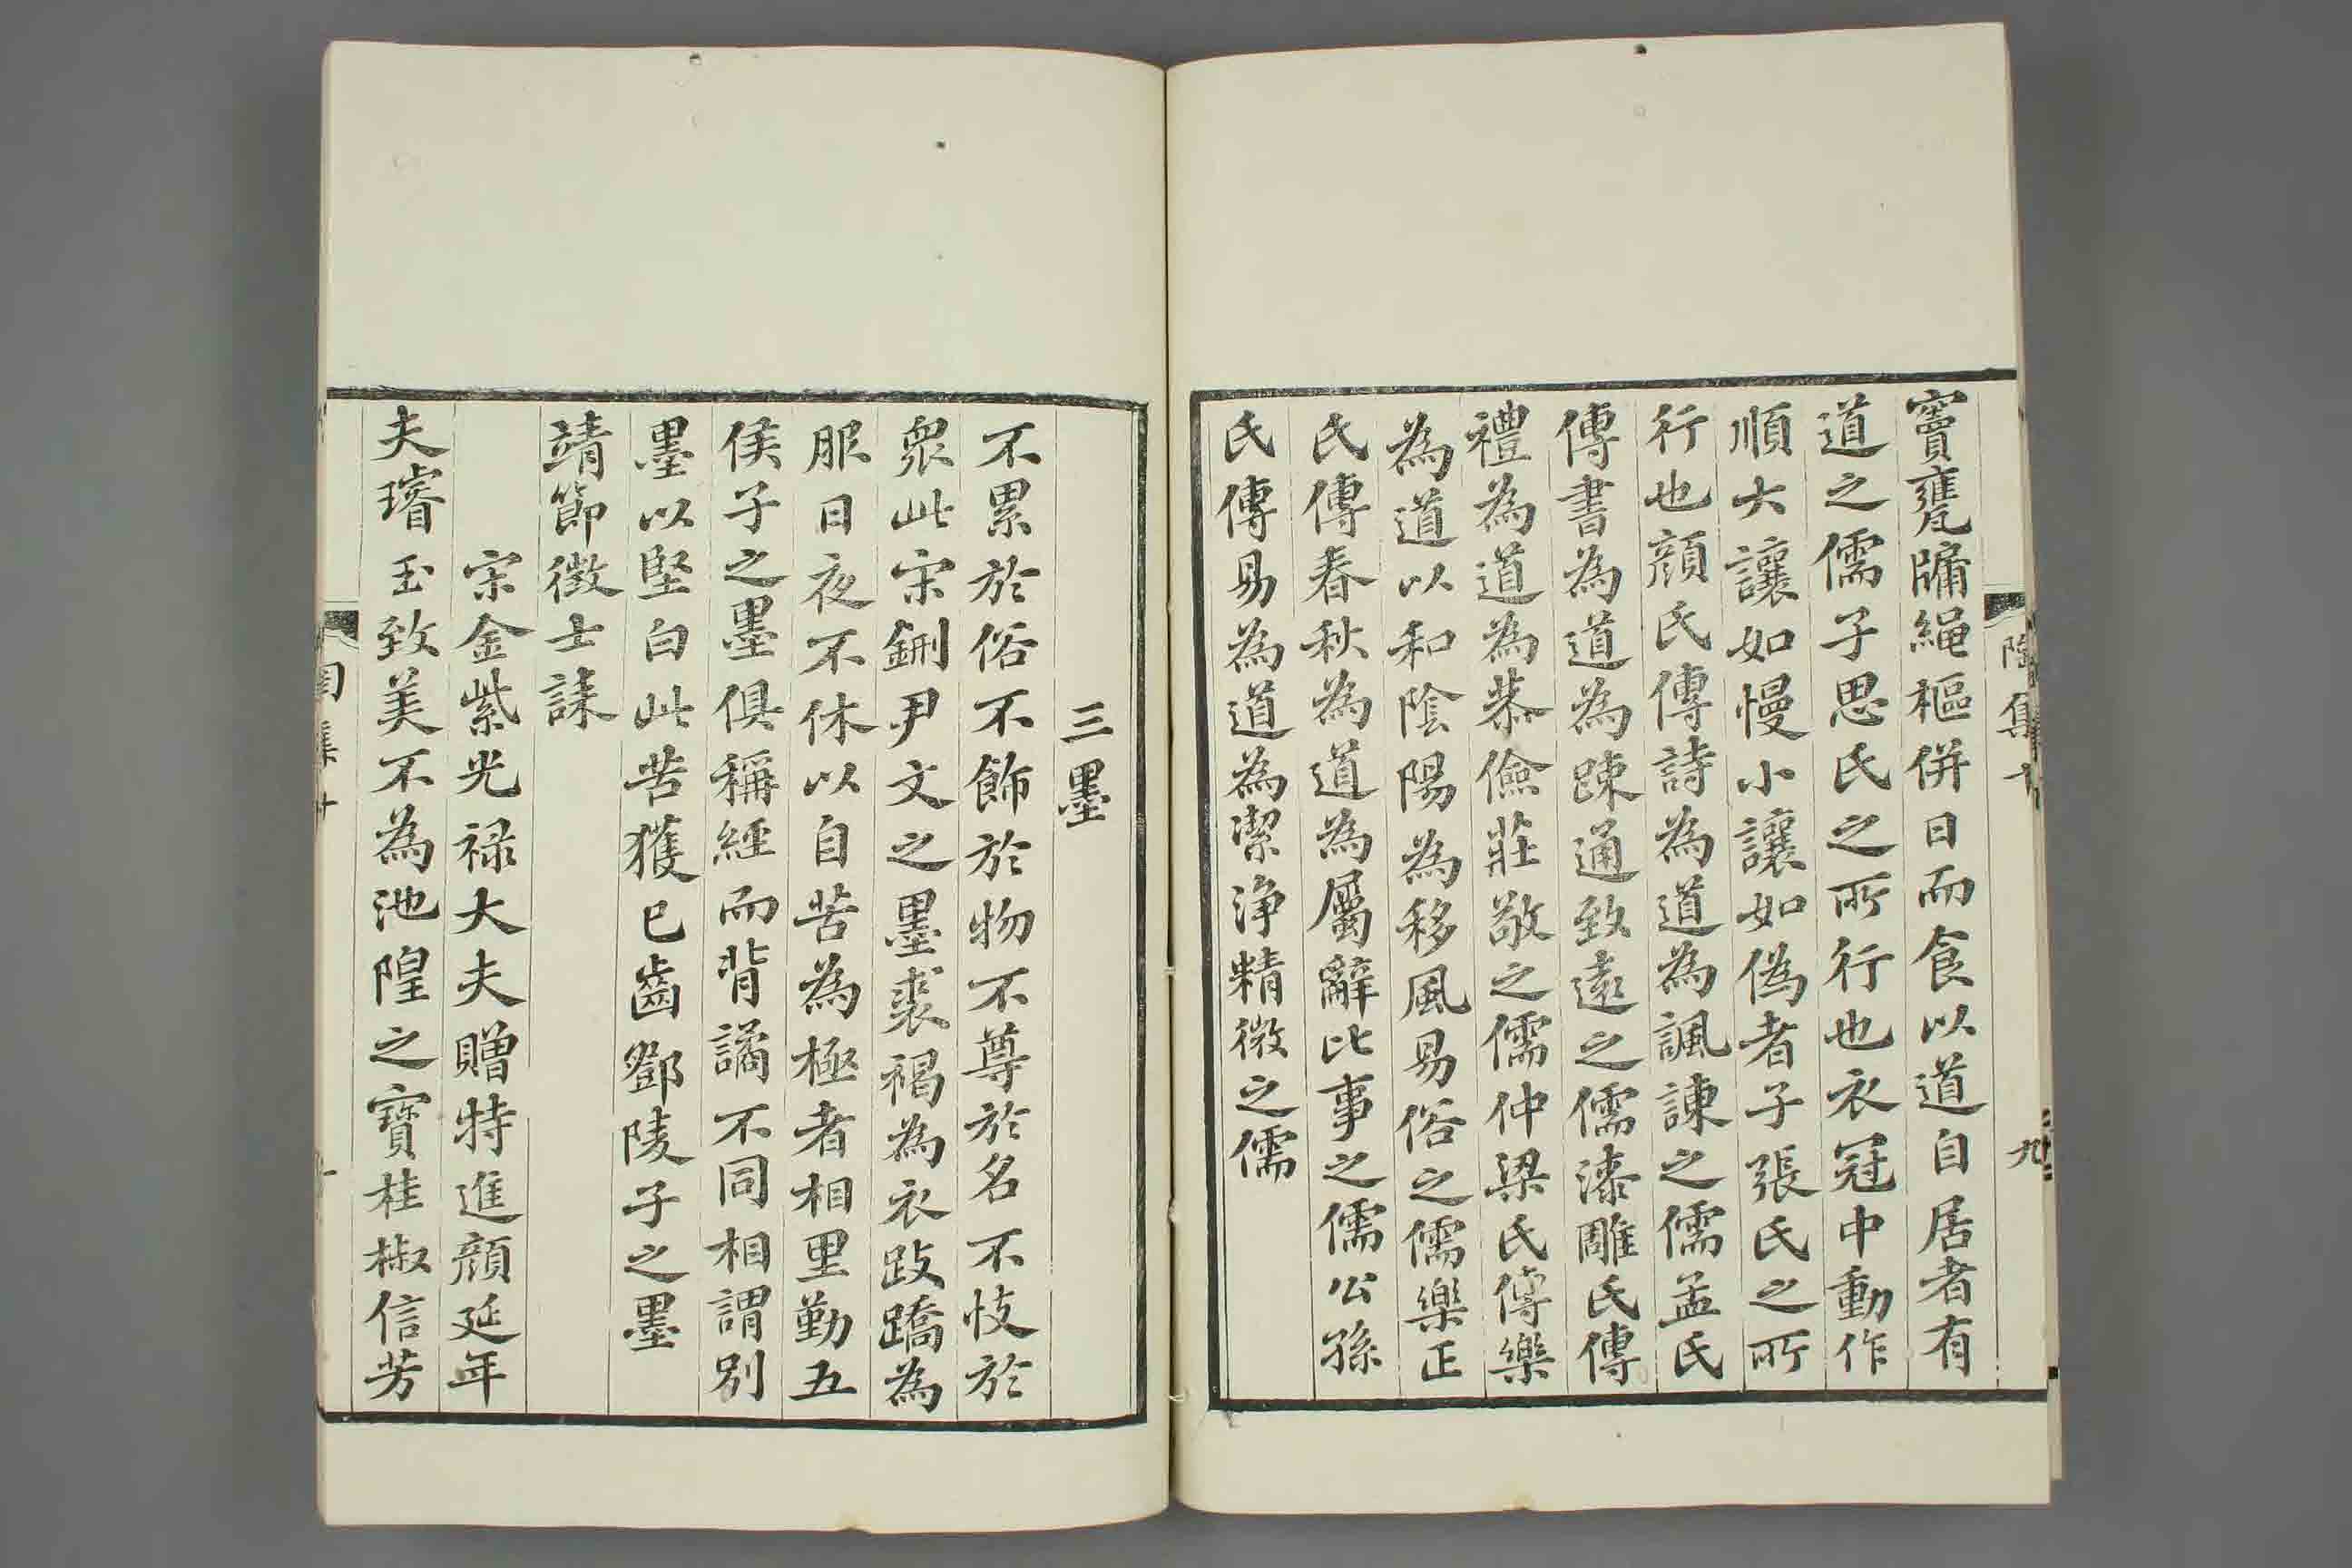 竇甕牖繩樞併日而食以道自居者有
道之儒子思氏之所行也衣冠中動作
順大讓如慢小讓如偽者子張氏之所
行也顔氏傳詩為道為諷諫之儒孟氏
傳書為道為踈通致遠之儒漆雕氏傳
禮為道為恭儉莊敬之儒仲梁氏傳樂
為道以和陰陽為移風易俗之儒樂正
氏傳春秋為道為屬辭比事之儒公孫
氏傳易為道為潔淨精微之儒
三墨
不累於俗不飾於物不尊於名不忮於
衆此宋銒尹文之墨裘褐為衣跂蹻為
服日夜不休以自苦為極者相里勤五
侯子之墨俱稱經而背譎不同相謂別
墨以堅白此苦獲已齒鄧陵子之墨
靖節徵士誄
宗金紫光祿大夫贈特進顔延年
夫璿玉致美不為池隍之寶桂椒信芳